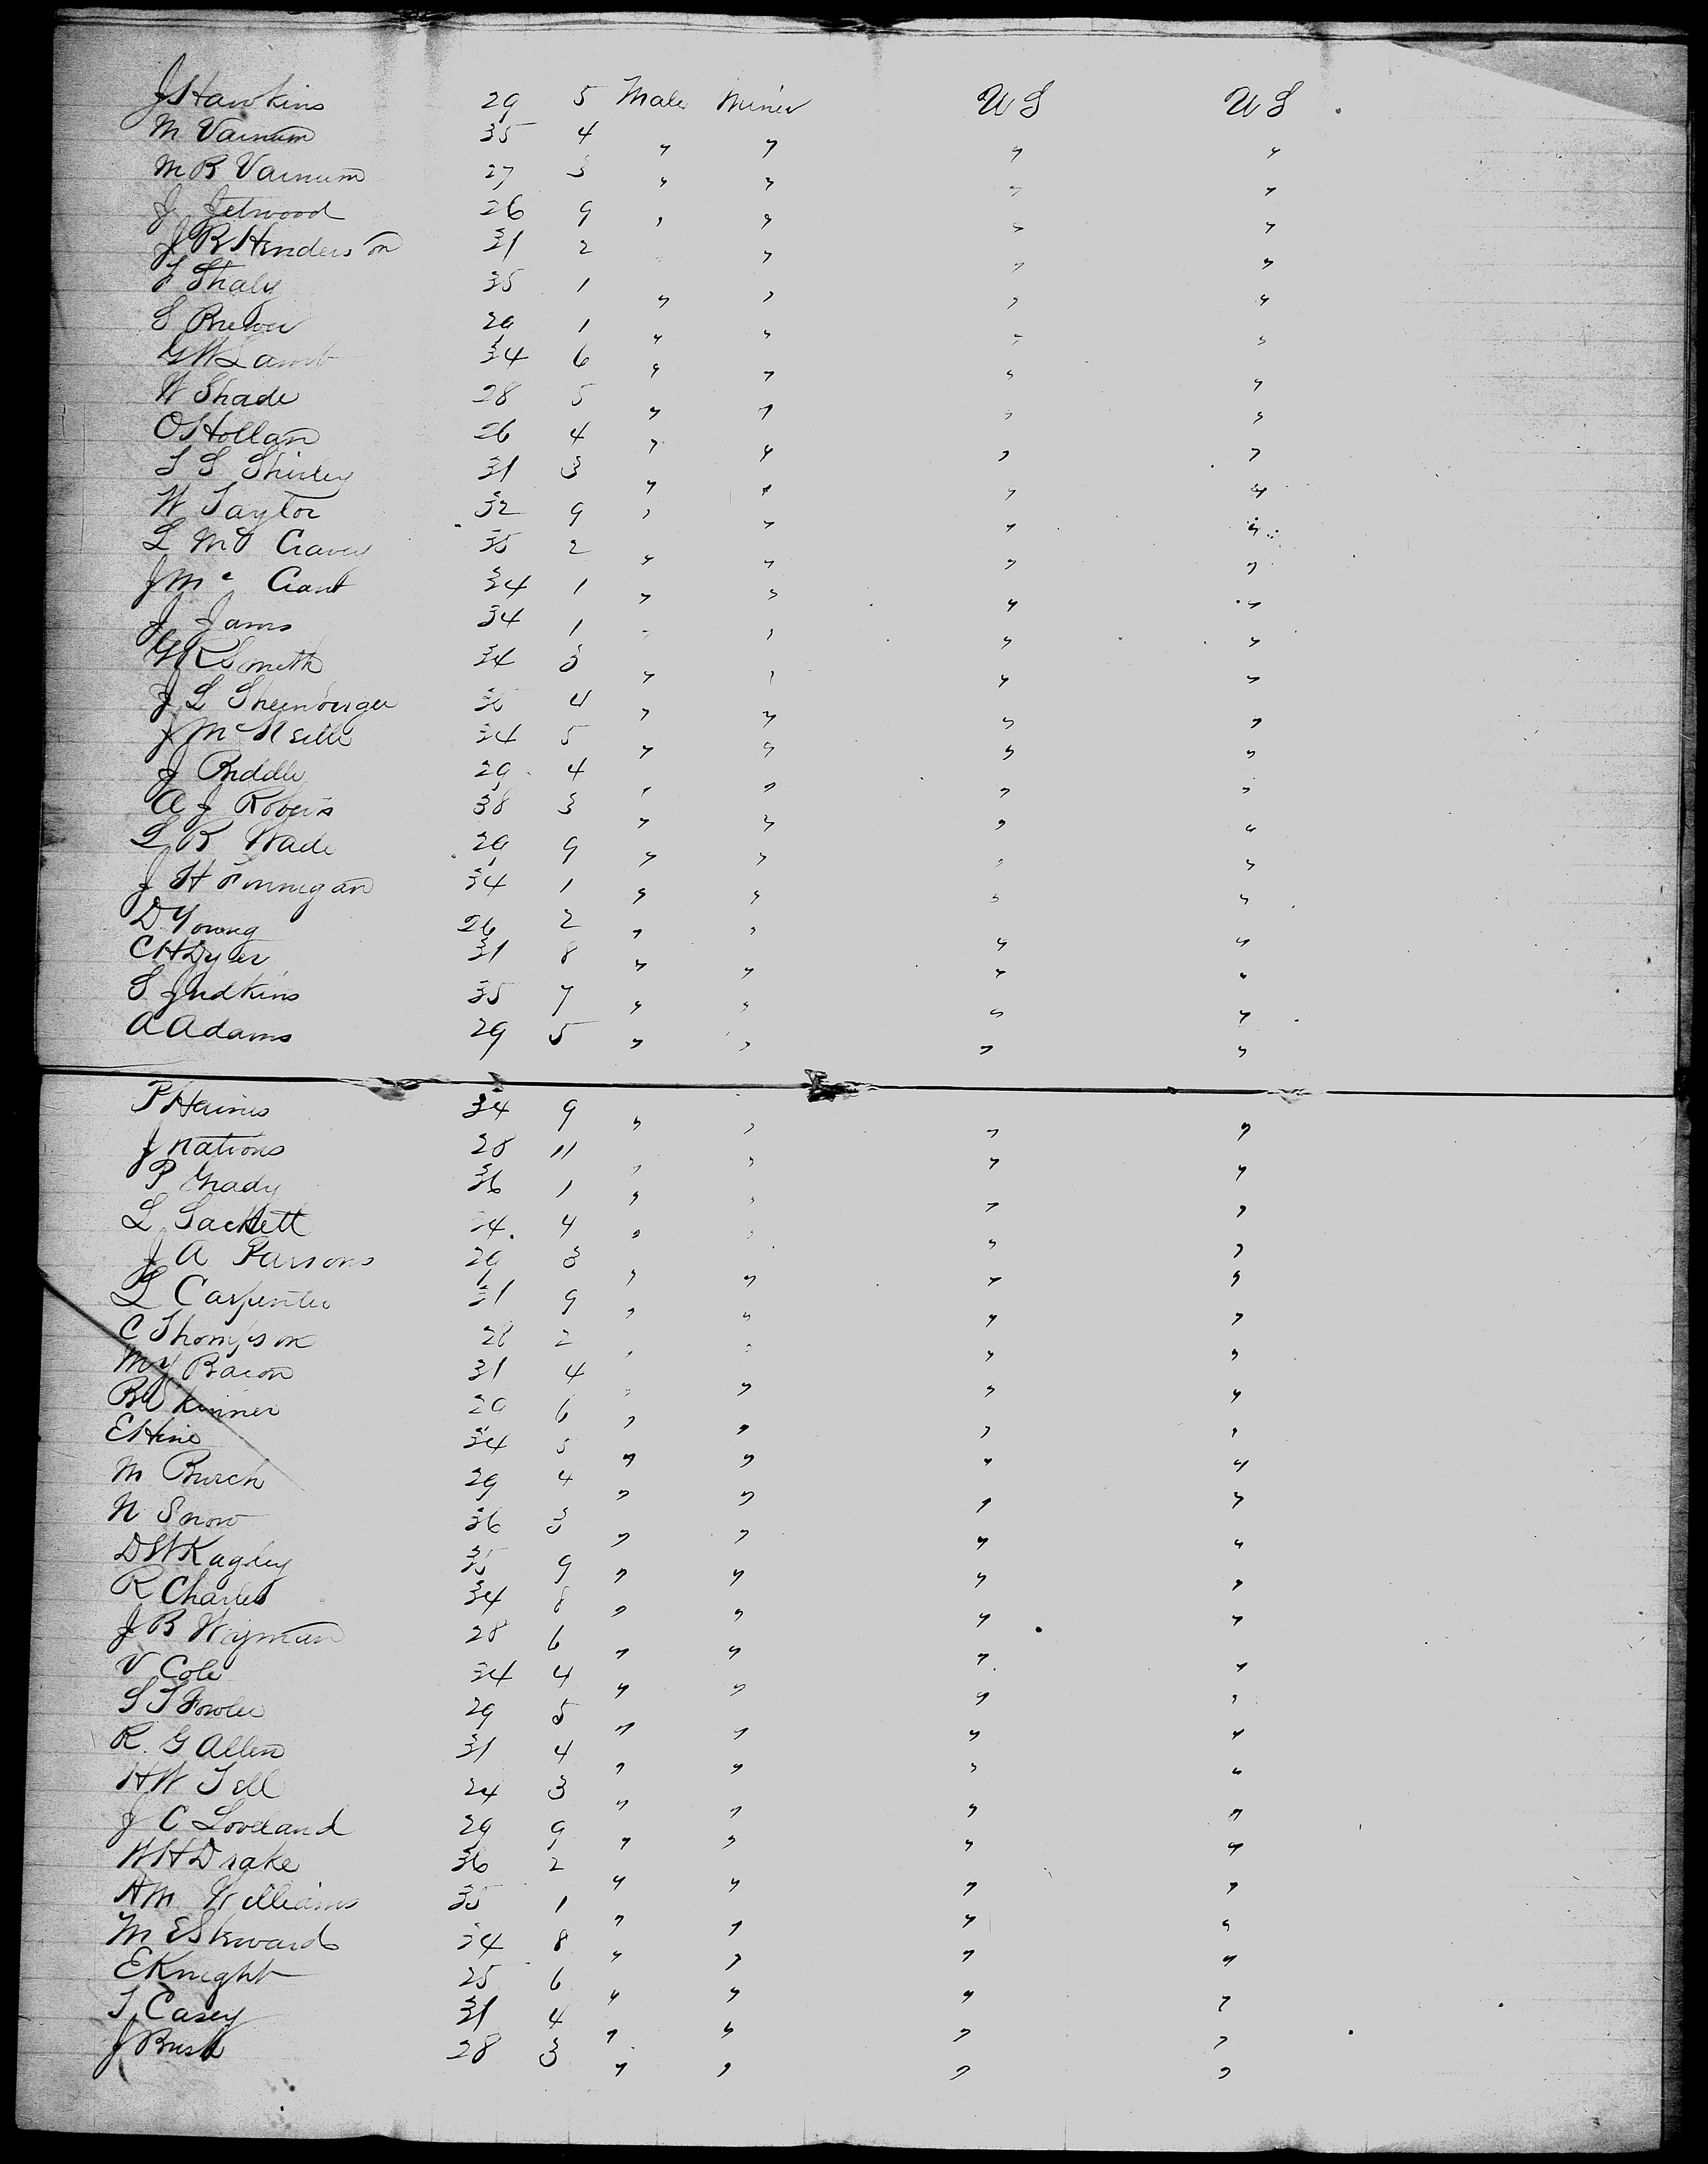 J Hawkins 29 5 Male Miner U S U S
M Varnum 35 4 " " " "
M B Varnum 27 3 " " " "
J Jetwood 26 9 " " " "
J B Henderson 31 2 " " " "
T Staly 35 1 " " " "
S Brewer 29 1 " " " "
G W Lamb 34 6 " " " "
W Shade 28 5 " " " "
O Hollan 26 4 " " " "
T S Shirley 31 3 " " " "
W Taylor 32 9 " " " "
L Mc Cravey 35 2 " " " "
J Mc Cant 34 1 " " " "
J Jams 34 1 " " " "
G K Smith 34 3 " " " "
J L Sheenberger 36 4 " " " "
J McNeille 34 5 " " " "
J Riddle 29 4 " " " "
A J Rogers 38 3 " " " "
L R Wade 29 9 " " " "
J H Finnegan 34 1 " " " "
D Young 26 2 " " " "
C H Dyer 31 8 " " " "
S Judkins 35 7 " " " "
A Adams 29 5 " " " "
P Haines 34 9 " " " "
J Nations 28 11 " " " "
P Grady 36 1 " " " "
L Sackett 34 4 " " " "
J A Parsons 29 3 " " " "
L Carpenter 31 9 " " " "
C Thompson 28 2 " " " "
M Y Bacon 31 4 " " " "
B Skinner 29 6 " " " "
E Hine 34 5 " " " "
M Burch 29 4 " " " "
N Snow 36 3 " " " "
D W Kagley 35 9 " " " "
R Charles 34 8 " " " "
J B Wyman 28 6 " " " "
V Cole 34 4 " " " "
S T Fowler 29 5 " " " "
R. G Allen 31 4 " " " "
H W Tell 24 3 " " " "
J C Loveland 29 9 " " " "
W H Drake 36 2 " " " "
H M Williams 35 1 " " " "
M E Steward 34 8 " " " "
E Knight 25 6 " " " "
T Casey 31 4 " " " "
J Bush 28 3 " " " "